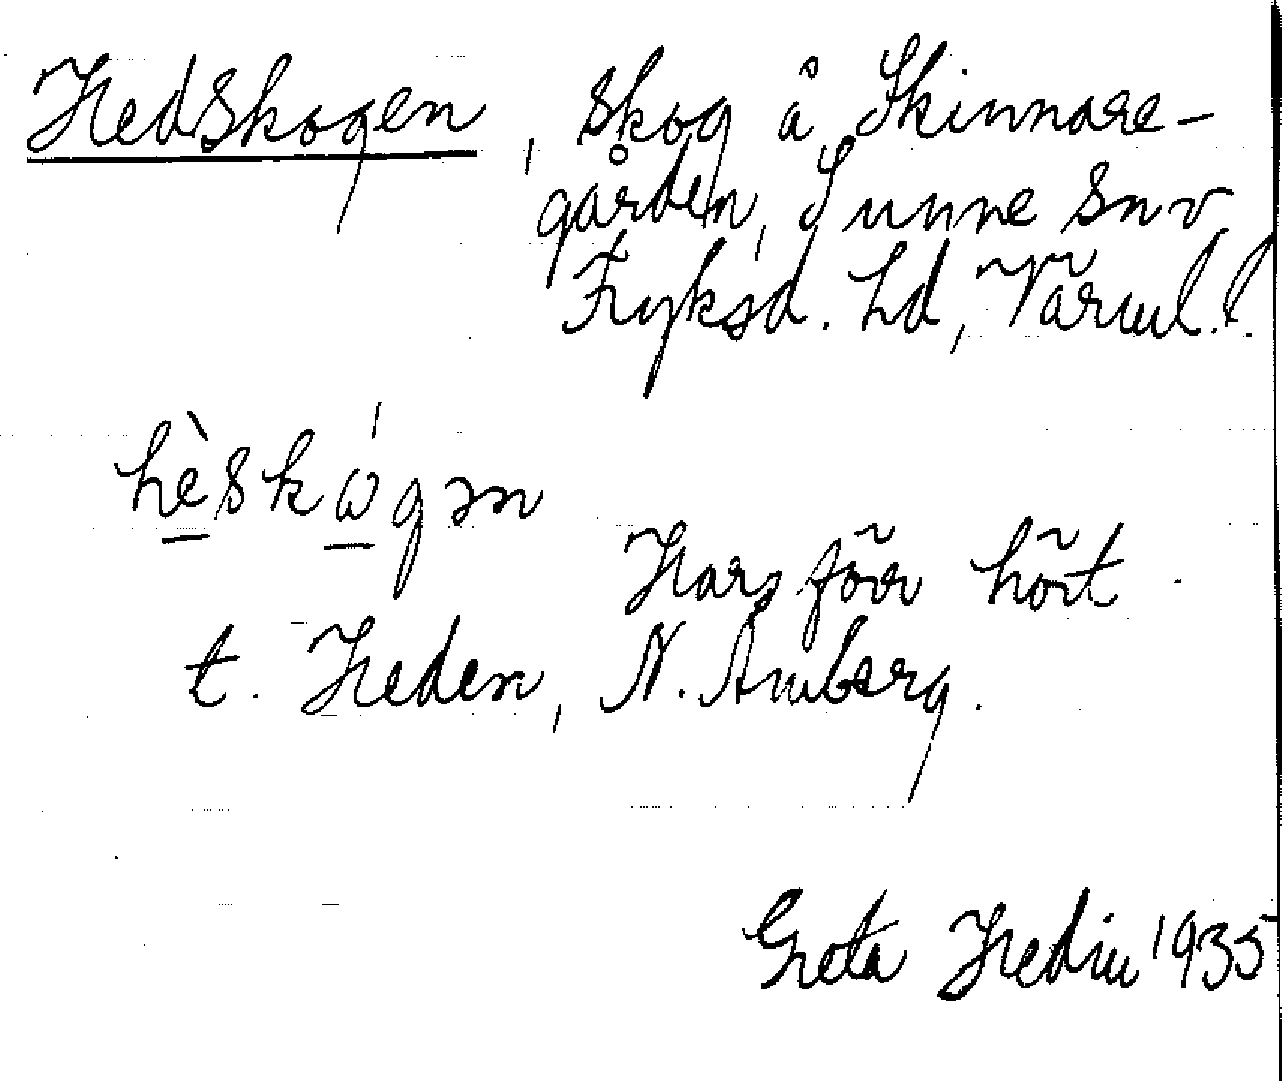 Hedskogen, skog å Skinnare-
gården, Sunne snv
Fryksd. hd, Värml. l.
hèskɷ́gən
Har förr hört
t. Heden, N. Åmberg.
Greta Hedin 1935